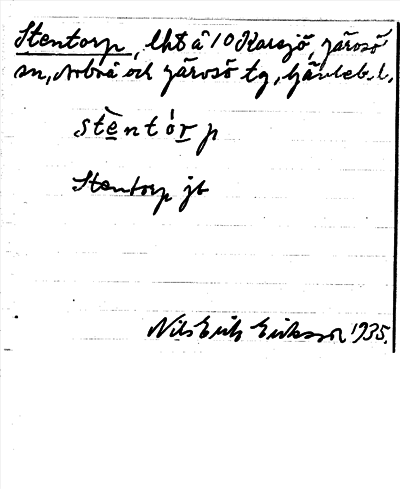 Stentorp, lht å 10 Karsjö, Järvsö
sn, Arbrå och Järvsö tg, Gävleb. l.
stèntórp
Stentorp jb
Nils Erik Eriksson 1935.